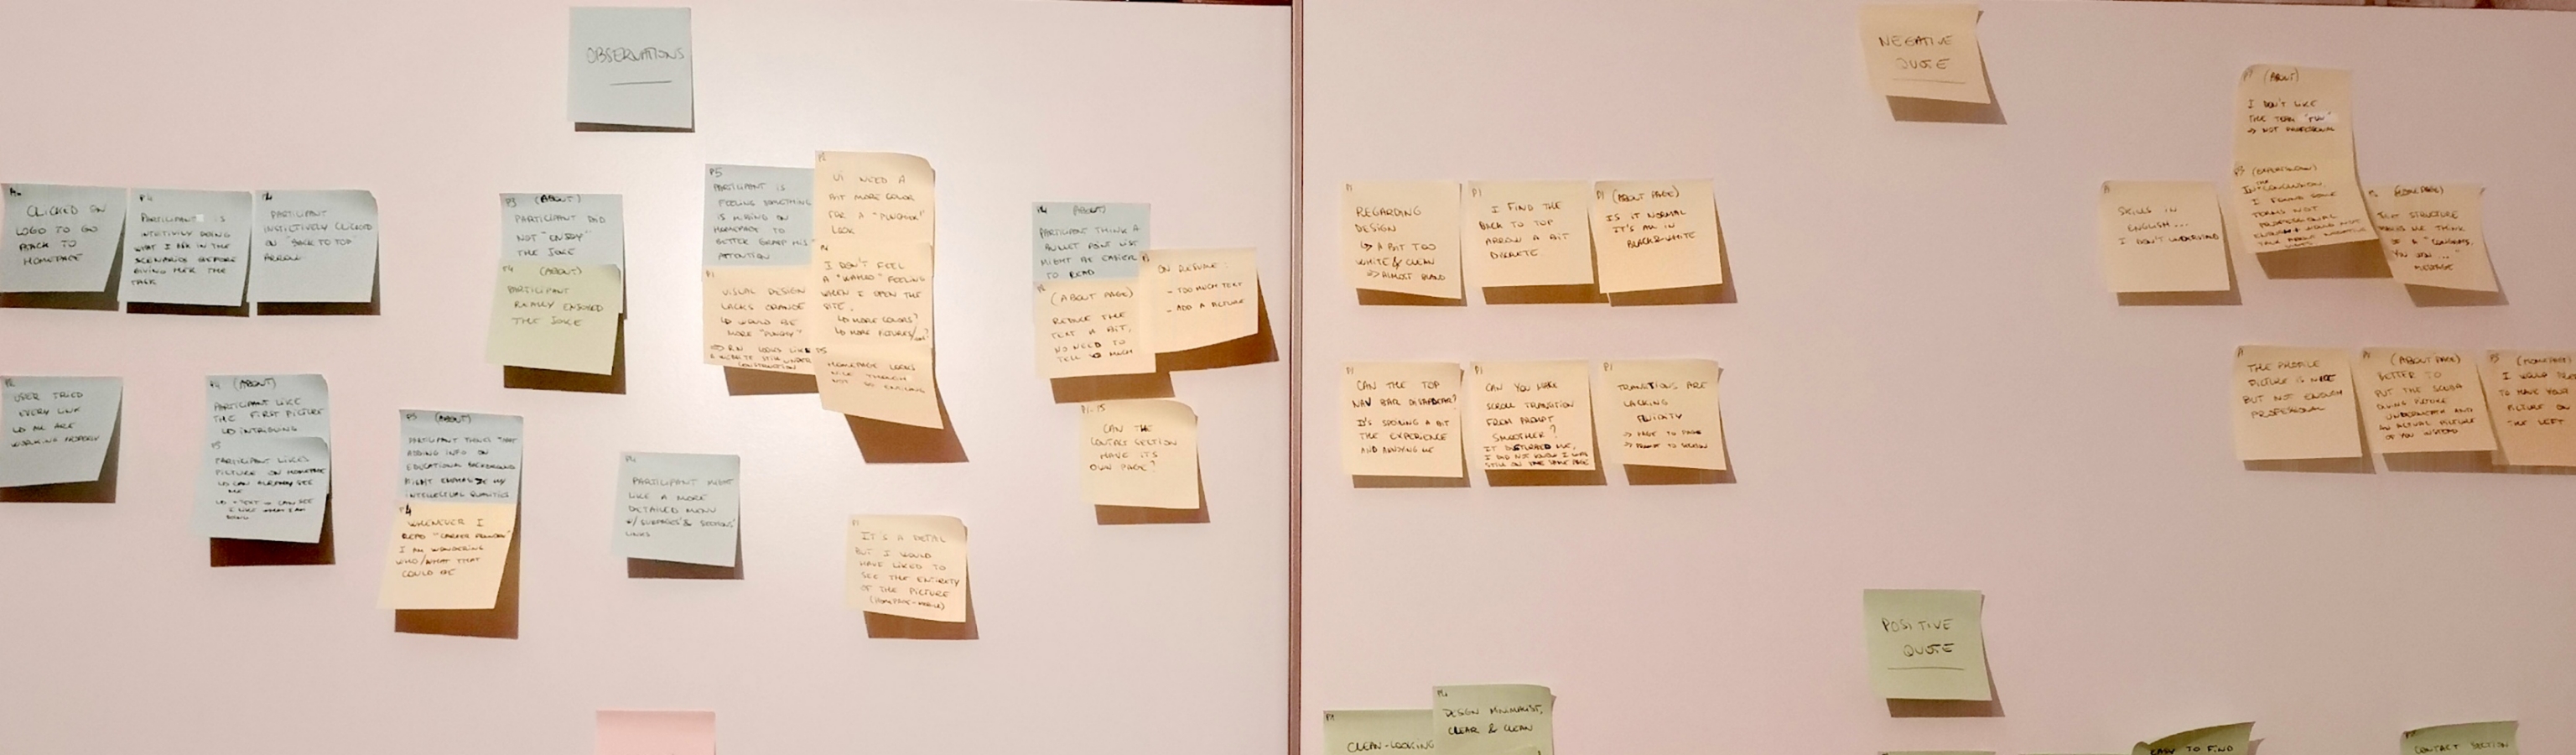 OBSERVATIONS
CLICKED ON
LOGO TO GO
BACK TO
HOMEPAGE
P4
PARTICIPANT IS
INTITIVILY DOING
WHAT I ASK IN THE
SCENARIOS BEFORE
GIVING HER THE
TASK
PARTICIPANT
INSTICTIVELY CLICKED
ON "BACK TO TOP"
ARROW
P3 (ABOUT)
PARTICIPANT DID
NOT "ENJOY"
THE JOKE
P4 (ABOUT)
PARTICIPANT
REALLY ENJOYED
THE JOKE
P5
PARTICIPANT IS
FEELING SOMETHING
IS MISSING ON
HOMEPAGE TO
BETTER GRASP HIS
ATTENTION
P1
VISUAL DESIGN
LACKS ORANGE
WOULD BE
MORE "PUNCHY"
UI NEED A
BIT MORE COLOR
FOR A "PUNCHIER"
LOOK
I DON'T FEEL
A "WAHOO" FEELING
WHEN I OPEN THE
SITE.
MORE COLORS?
MORE PICTURES
HOMEPAGE LOOKS
NICE THOUGH
NOT SO
(ABOUT)
PARTICIPANT THINK A
BULLET POINT LIST
MIGHT BE EASIER
TO READ
(ABOUT PAGE)
REDUCE THE
TEXT A BIT,
NO NEED TO
TELL SO MUCH
ON RESUME:
- TOO MUCH TEXT
- ADD A PICTURE
CAN THE
CONTACT SECTION
HAVE ITS
OWN PAGE?
USER TRIED
EVERY LINK
ALL ARE
WORKING PROPERLY
P4 (ABOUT)
PARTICIPANT LIKE
THE FIRST PICTURE
INTRIGUING
P5
PARTICIPANT LIKES
PICTURE ON HOMEPAGE
CAN ALREADY SEE
ME
P5 (ABOUT)
PARTICIPANT THINKS THAT
ADDING INFO ON
EDUCATIONAL BACKGROUND
MIGHT EMPHASIZE MY
INTELLECTUAL QUALITIES
P4
WHENEVER I
READ "CAREER
I AM WONDERING
WHO/WHAT THAT
COULD BE
PARTICIPANT MIGHT
LIKE A MORE
DETAILED MENU
W/ SUBPAGES & SECTIONS'
LINKS
P1
IT'S A DETAIL
BUT I WOULD
HAVE LIKED TO
SEE THE ENTIRETY
OF THE PICTURE
(HOMEPAGE - MOBILE)
NEGATIVE
QUOTE
P1
REGARDING
DESIGN
A BIT TOO
WHITE & CLEAN
=> ALMOST BLAND
P1
I FIND THE
BACK TO TOP
ARROW A BIT
DISCRETE
P1 (ABOUT PAGE)
IS IT NORMAL
IT'S ALL IN
BLACK & WHITE
P1
CAN THE TOP
NAV BAR DISAPPEAR?
IT'S SPOILING A BIT
THE EXPERIENCE
AND ANNOYING ME
P1
CAN YOU MAKE
SCROLL TRANSITION
FROM PROMPT
SMOOTHER?
IT DISTURBED ME,
I DID NOT KNOW I WAS
STILL ON THE SAME PAGE
P1
TRANSITIONS ARE
LACKING
FLUIDITY
=> PAGE TO PAGE
SKILLS IN
ENGLISH...
I DON'T UNDERSTAND
(ABOUT)
I DON'T LIKE
THE TERM "FUN"
=> NOT PROFESSIONAL
IN THE CONCLUSION
I FOUND SOME
TERMS NOT
PROFESSIONAL
(HOMEPAGE)
TEXT STRUCTURE
MAKES ME THINK
OF A "CONGRATS,
YOU WON..."
MESSAGE
THE PROFILE
PICTURE IS NICE
BUT NOT ENOUGH
PROFESSIONAL
(ABOUT PAGE)
BETTER TO
PUT THE SCUBA
DIVING PICTURE
UNDERNEATH AND
AN ACTUAL PICTURE
OF YOU INSTEAD
(HOMEPAGE)
I WOULD
TO HAVE YOUR
PICTURE ON
THE LEFT
POSITIVE
QUOTE
CLEAN-LOOKING
DESIGN MINIMALIST,
CLEAR & CLEAN
EASY TO FIND
CONTACT SECTION